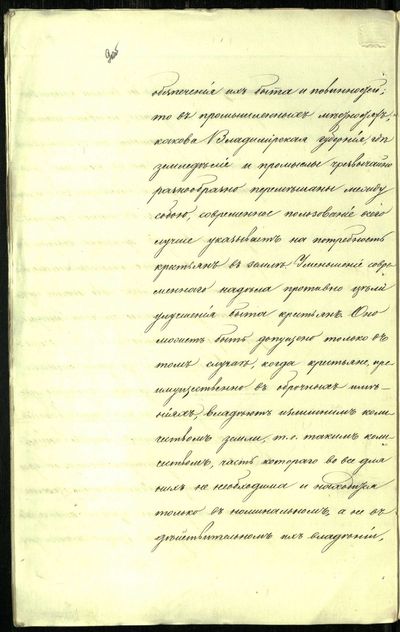 обезпеченія ихъ быта и повинностей;
то въ промышленныхъ мѣстностяхъ,
какова Владимірская губернія, гдѣ
земледѣліе и промыслы чрезвычайно
разнообразно перемѣшаны между
собою, современное пользованіе всего
лучше указываетъ на потребность
крестьянъ въ землѣ. Уменьшеніе совре-
меннаго надѣла противно цѣли
улучшенія быта крестьянъ. Оно
можетъ быть допущено только въ
томъ случаѣ, когда крестьяне, пре-
имущественно въ оброчныхъ имѣ-
ніяхъ, владѣютъ излишнимъ коли-
чествомъ земли, т. е. такимъ коли-
чествомъ, часть котораго во все для
нихъ не необходима и находится
только въ номинальномъ, а не въ
дѣйствительномъ ихъ владѣніи.